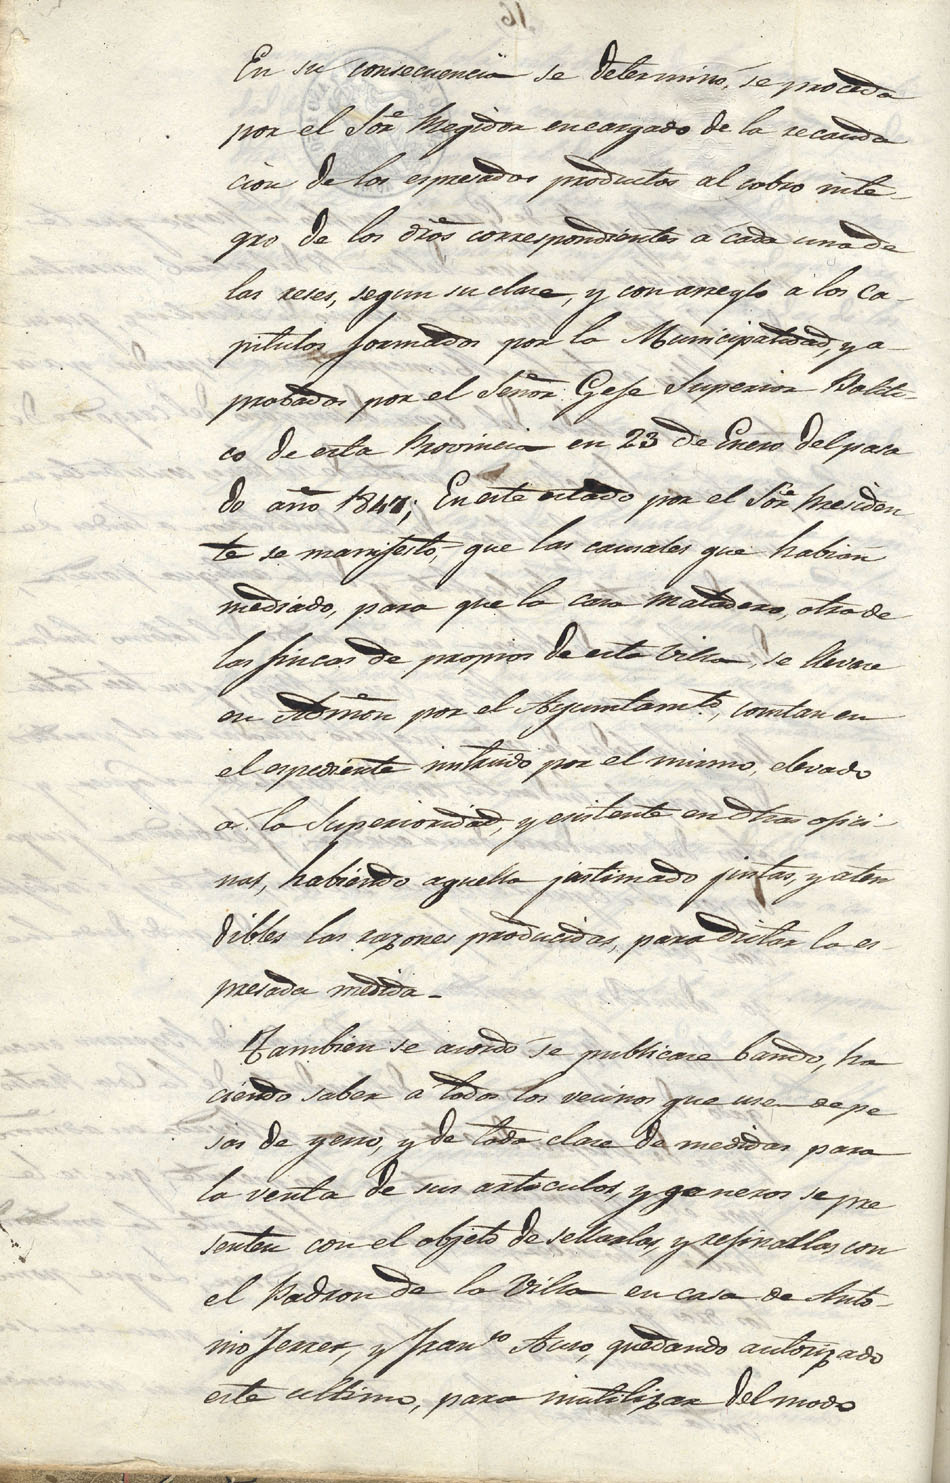 En su consecuencia se determinó, se proceda
por el Sor. Regidor encargado de la recauda
cion de los espresados productos al cobro inte-
gro de los dros correspondientes a cada una de
las reses, segun su clase, y con arreglo a los Ca-
pitulos formados por la Municipalidad, y a-
probados por el Señor Gefe Superior Politi-
co de esta Provincia en 23 de Enero del pasa
do año 1847; En este estado por el Sor. Presiden
te se manifestó, que las causales que habian
mediado, para que la casa matadero, otra de
las fincas de propios de esta Villa, se llevase
en Admon por el Ayuntamto, constan en
el espediente instruido por el mismo, elevado
a la Superioridad, y existente en otras ofici-
nas, habiendo aquella justimado justas, y aten
dibles las razones producidas, para dictar la es-
presada medida.
Tambien se acordó se publicase bando, ha
ciendo saber a todos los vecinos que use de pe
sas de yerro, y de toda clase de medidas para
la venta de sus articulos, y generos se pre
senten con el objeto de sellarlas, y refinarlas con
el Padron de la Villa en casa de Anto-
nio Ferrer, y Franco Asso, quedando autorizado
este ultimo, para inutilizar del modo